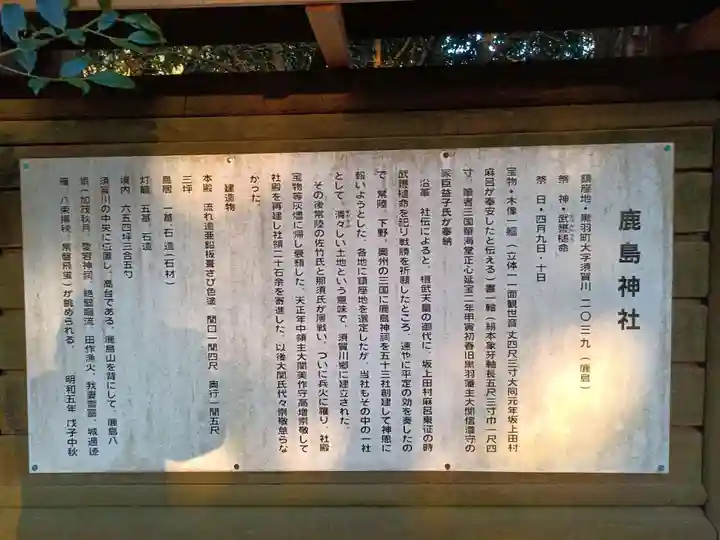 鹿島神社
鎮座地・黒羽町大字須賀川 二〇三九(鹿島)
祭 神・武甕槌命
祭 日・四月九日・十日
宝物・木像一軀(立体一一面観世音 丈四尺三寸 大同元年坂上田村
麻呂が奉安したと伝える)書一軸(絹本象牙軸長五尺三寸巾一尺四
寸、筆者三国筆海堂正心延宝二年甲寅初春旧黒羽藩主大関信増守の
家臣益子氏が奉納
沿革 社伝によると、桓武天皇の御代に、坂上田村麻呂東征の時
武甕槌命を祀り戦勝を祈願したところ、速やに平定の効を奏したの
で、常陸、下野、奥州の三国に鹿島神祠を五十三社創建して神恩に
報いようとした。各地に鎮座地を選定したが、当社もその中の一社
として、清々しい土地という意味で、須賀川郷に建立された。
その後常陸の佐竹氏と那須氏が層戦い、ついに兵火に罹り、社殿
宝物等灰燼に帰し衰頽した。天正年中領主大関美作守高増崇敬して
社殿を再建し社領二十石余を寄進した。以後大関氏代々崇敬怠らな
かった。
建造物
本殿 流れ造亜鉛板葺さび色塗 間口一間四尺 奥行一間五尺
三坪
鳥居 一基 石造(石材)
灯籠 五基 石造
境内 六五四坪三合五勺
須賀川の中央に位置し、高台である。鹿島山を背にして、鹿島八
景(加茂秋月、愛宕神祠、絶壁臨流、田作漁火、我妻雪景、城迴珍
雁、八束揚秧、常盤飛蛍)が眺められる。 明和五年 戊子中秋